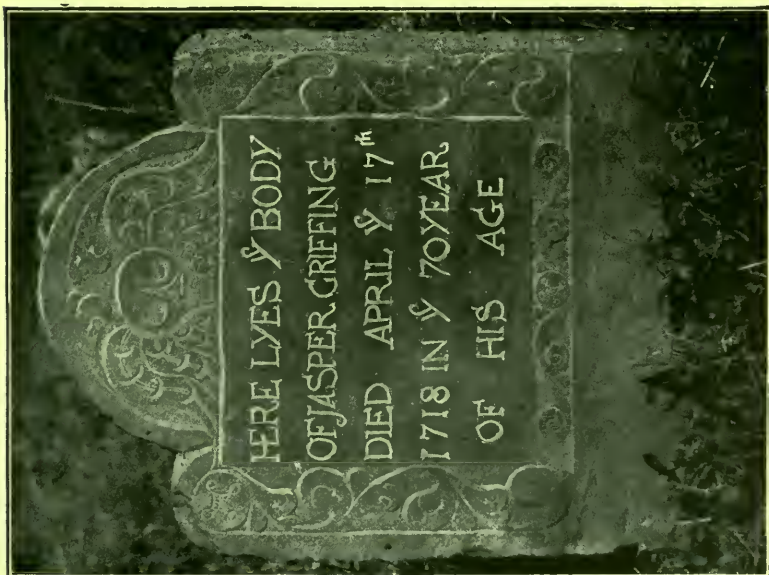 HERE LYES Yᵉ BODY
OF JASPER GRIFFING
DIED APRIL Yᵉ 17ᵗʰ
1718 IN Yᵉ 70 YEAR
OF HIS AGE